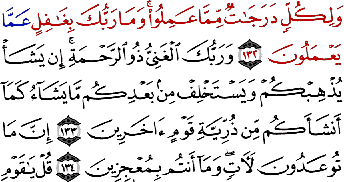 وَلِكُلٍّ دَرَجَٰتٌ مِّمَّا عَمِلُوا۟ ۚ وَمَا رَبُّكَ بِغَٰفِلٍ عَمَّا
يَعْمَلُونَ ١٣٢ وَرَبُّكَ ٱلْغَنِىُّ ذُو ٱلرَّحْمَةِ ۚ إِن يَشَأْ
يُذْهِبْكُمْ وَيَسْتَخْلِفْ مِنۢ بَعْدِكُم مَّا يَشَآءُ كَمَآ
أَنشَأَكُم مِّن ذُرِّيَّةِ قَوْمٍ ءَاخَرِينَ ١٣٣ إِنَّ مَا
تُوعَدُونَ لَءَاتٍ ۖ وَمَآ أَنتُم بِمُعْجِزِينَ ١٣٤ قُلْ يَٰقَوْمِ